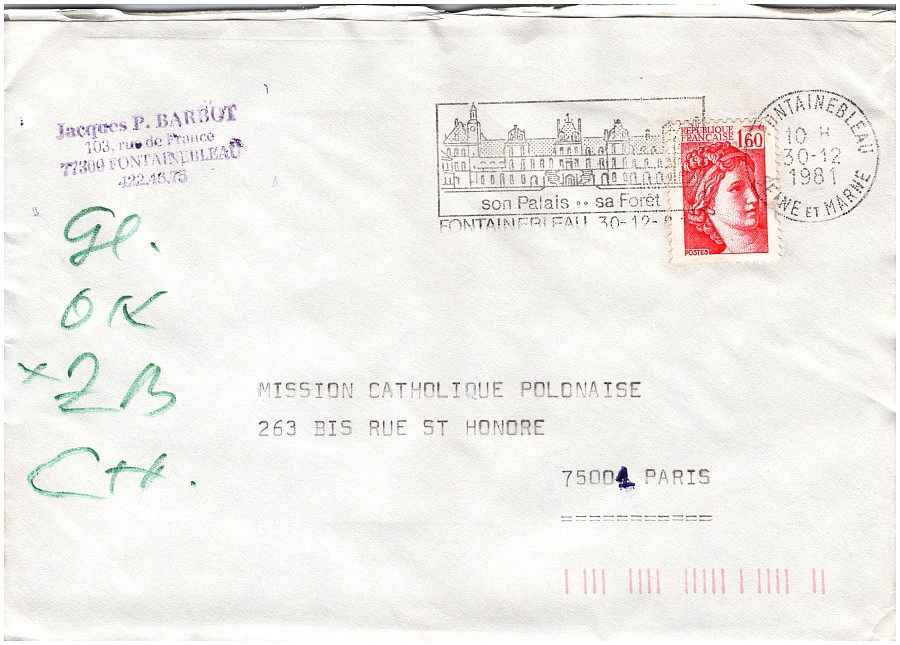 Jacques P. BARBOT
103, rue de France
77300 FONTAINEBLEAU
422.46.75
son Palais .. sa Forêt
FONTAINEBLEAU 30-12-
REPUBLIQUE
FRANCAISE
1,60
POSTES
FONTAINEBLEAU
10 H
30-12
1981
SEINE ET MARNE
Gl.
OK
x ZB
CH.
MISSION CATHOLIQUE POLONAISE
263 BIS RUE ST HONORE
75001 PARIS